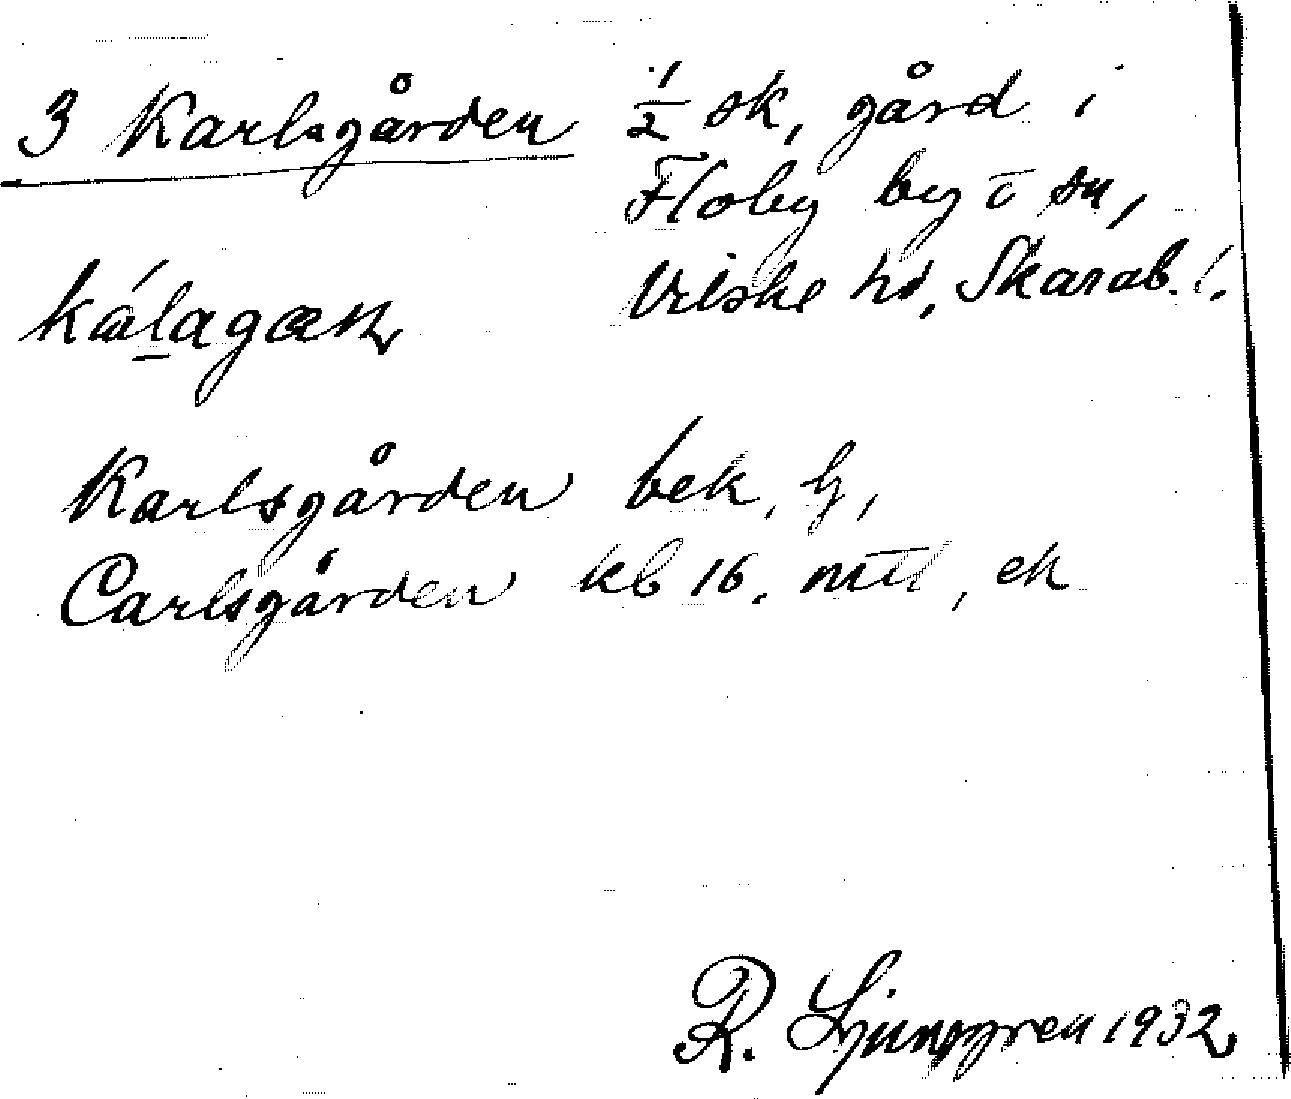 3 Karlsgården ½ sk, gård i
Floby by o sn,
Vilske hd, Skarab. l.
kálagæn
Karlsgården bek. Lj,
Carlsgården kb 16. mtl, ek
R. Ljunggren 1932